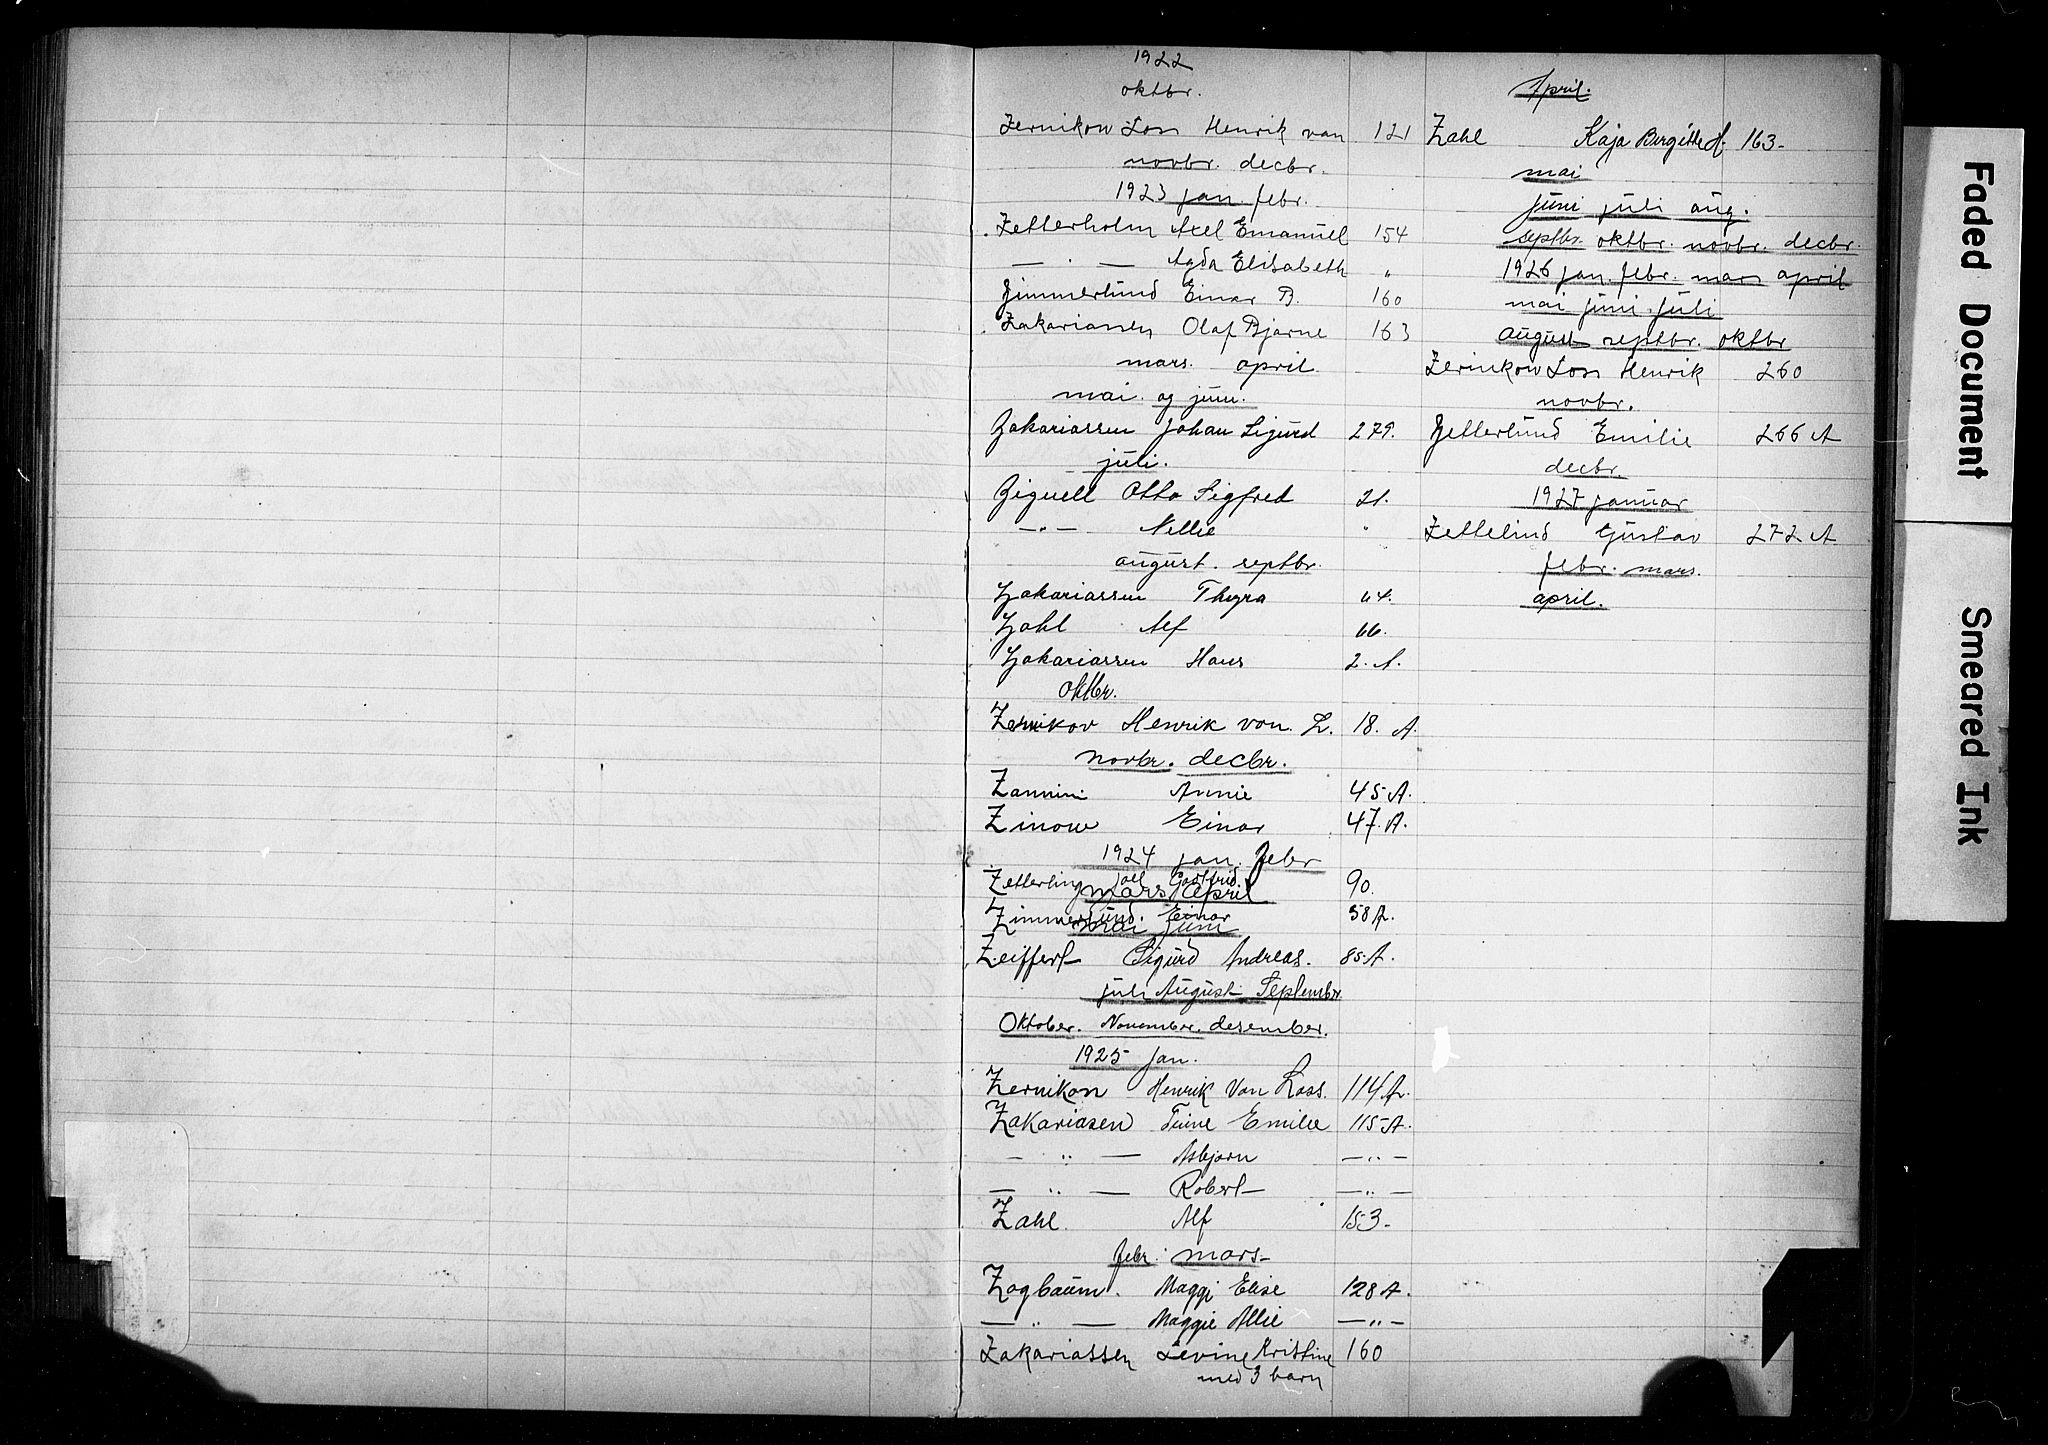 1922
oktbr.
Zernikow Loss Henrik van 121
novbr. decbr.
1923 jan. febr.
Zetterholm Axel Emanuel 154
— " — Agda Elisabeth "
Zimmerlund Einar B. 160
Zakariassen Olaf Bjarne 163
mars. april
mai. og juni.
Zakariassen Johan Sigurd 279.
juli.
Ziguell Otto Sigfred 21.
— " — Nellie "
august. septbr.
Zakariassen Thyra 64.
Zahl Alf 66.
Zakariassen Hans 2. A.
Oktbr.
Zernikov Henrik von. L. 18. A.
Novbr. decbr.
Zannini Annie 45 A.
Zinow Einar 47. A.
1924 jan. febr
Zetterling Joel Gottfrid 90.
mars April
Zimmerlund. Einar 58 A.
mai juni
Zeiffert Sigurd Andreas. 85. A.
juli August September
Oktober. November. desember.
1925 Jan.
Zernikon Henrik Van Loss. 114 A.
Zakariasen Trine Emilie 115 A.
— " — Asbjørn — " —
— " — Robert — " —
Zahl. Alf 153-
febr. mars-
Zogbaum. Maggi Elise 128 A.
— " — Maggie Allie — " —
Zakariassen Levine Kristine 160
med 3 barn
April.
Zahl Kaja Birgitte H. 163-
mai
juni juli aug.
septbr. oktbr. novbr. decbr.
1926 jan. febr. mars april
mai juni. juli
august septbr. oktbr
Zernikow Loss Henrik 260
novbr.
Zetterlund Emilie 266 A
decbr.
1927 januar
Zettelund Gustav 272 A
febr. mars.
april.
Faded Document
Smeared Ink